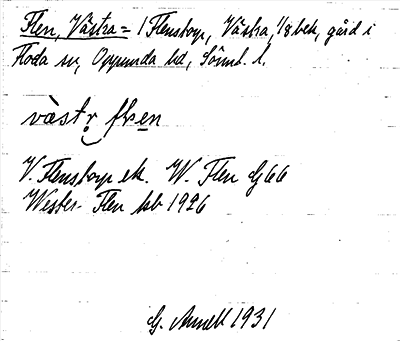 Flen, Västra = / Flenstorp, Västra, 1/8 bek, gård i
Floda sn, Oppunda hd, Södml. l.
väst flen
V. Flenstorp ek. W. Flen G66
Wester Flen hb 1926
G. Arnell 1931